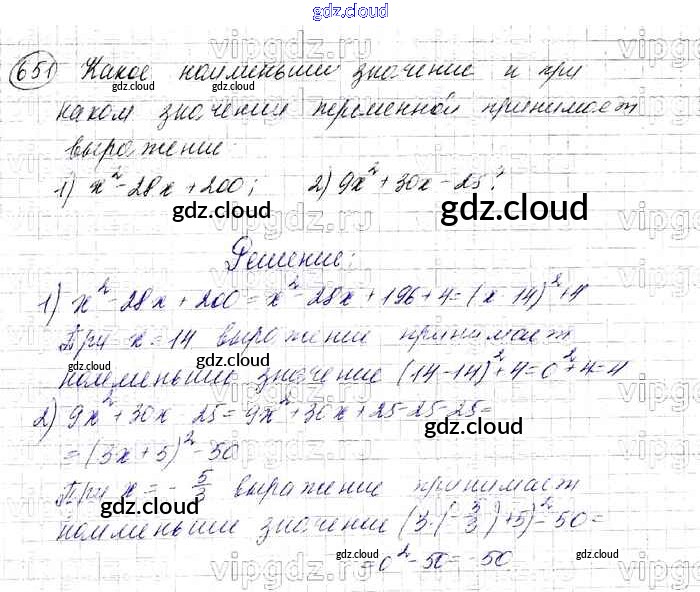 gdz.cloud
651 Какое наименьшее значение и при
каком значении переменной принимает
выражение:
1) x² - 28x + 200; 2) 9x² + 30x - 25?
Решение:
1) x² - 28x + 200 = x² - 28x + 196 + 4 = (x - 14)² + 4
При x = 14 выражение принимает
наименьшее значение (14 - 14)² + 4 = 0² + 4 = 4
2) 9x² + 30x - 25 = 9x² + 30x + 25 - 25 - 25 =
= (3x + 5)² - 50
При x = - 5/3 выражение принимает
наименьшее значение (3·(- 5/3) + 5)² - 50 =
= 0² - 50 = -50